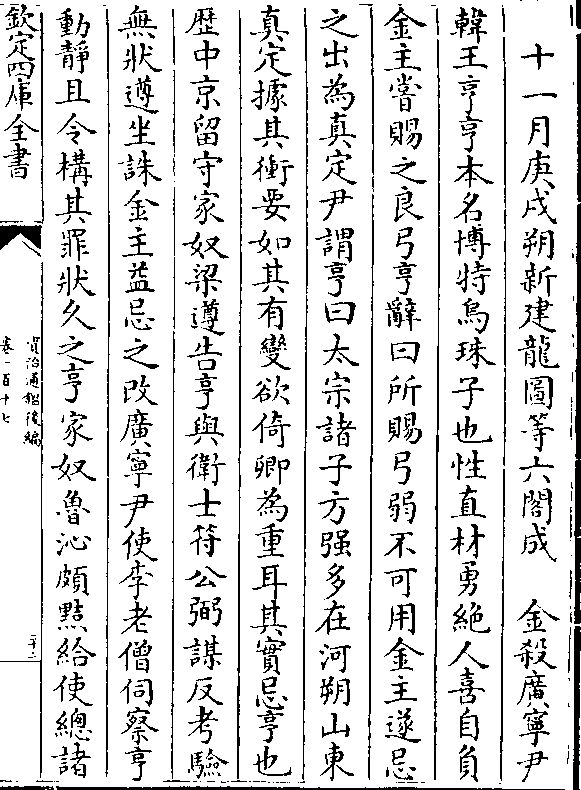 十一月庚戌朔新建龍圖等六閣成　金殺廣寧尹
韓王亨亨本名博特烏珠子也性直材勇絶人喜自負
金主嘗賜之良弓亨辭曰所賜弓弱不可用金主遂忌
之出為真定尹謂亨曰太宗諸子方强多在河朔山東
真定據其衝要如其有變欲倚卿為重耳其實忌亨也
歴中京留守家奴梁遵告亨與衛士符公弼謀反考驗
無狀遵坐誅金主益忌之改廣寧尹使李老僧伺察亨
動靜且令構其罪狀久之亨家奴魯沁頗黠給使總諸
欽定四庫全書
資治通鑑後編
卷一百十七
二十二